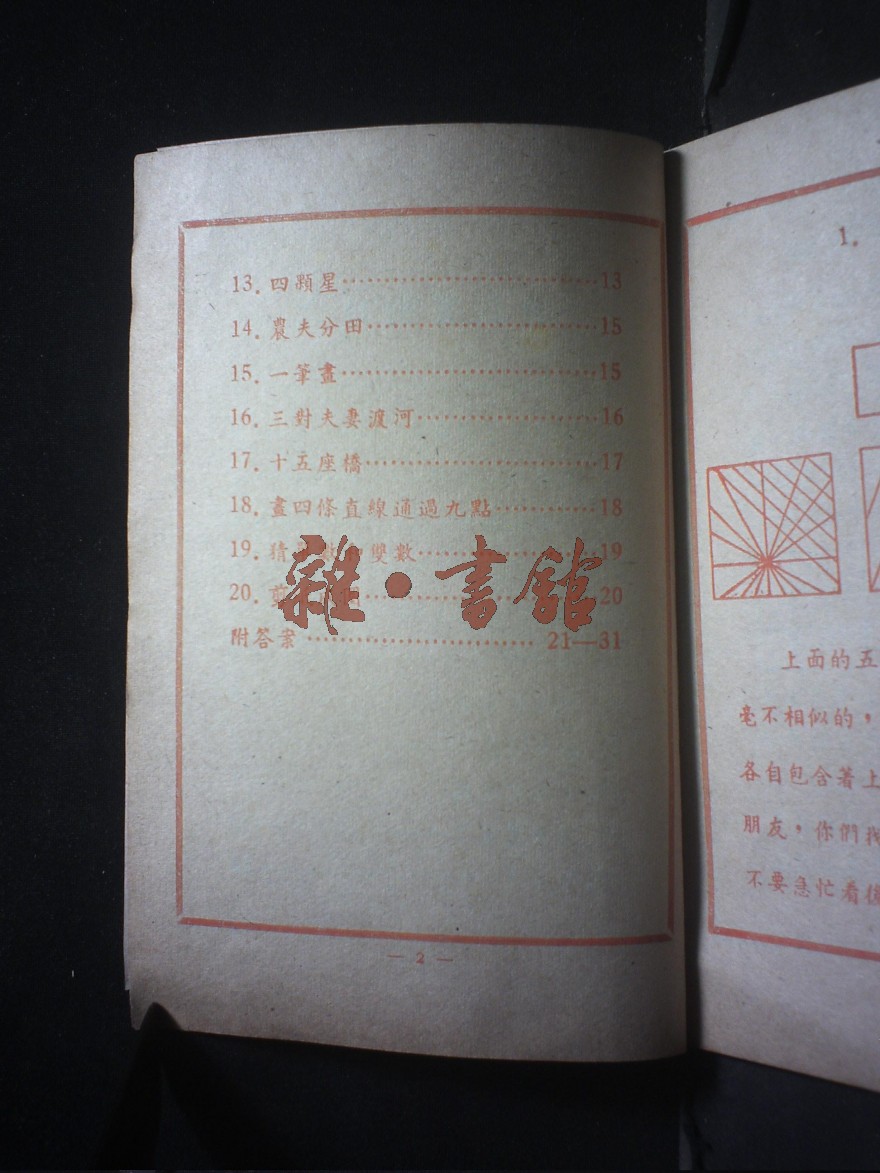 13. 四顆星…………………………13
14. 農夫分田………………………15
15. 一筆畫…………………………15
16. 三對夫妻渡河…………………16
17. 十五座橋………………………17
18. 畫四條直線通過九點…………18
19. 猜 數 雙數………………19
20. 剪 ……………………20
附答案………………………21—31
雜・書館
— 2 —
1.
上面的五
毫不相似的，
各自包含著上
朋友，你們找
不要急忙看後